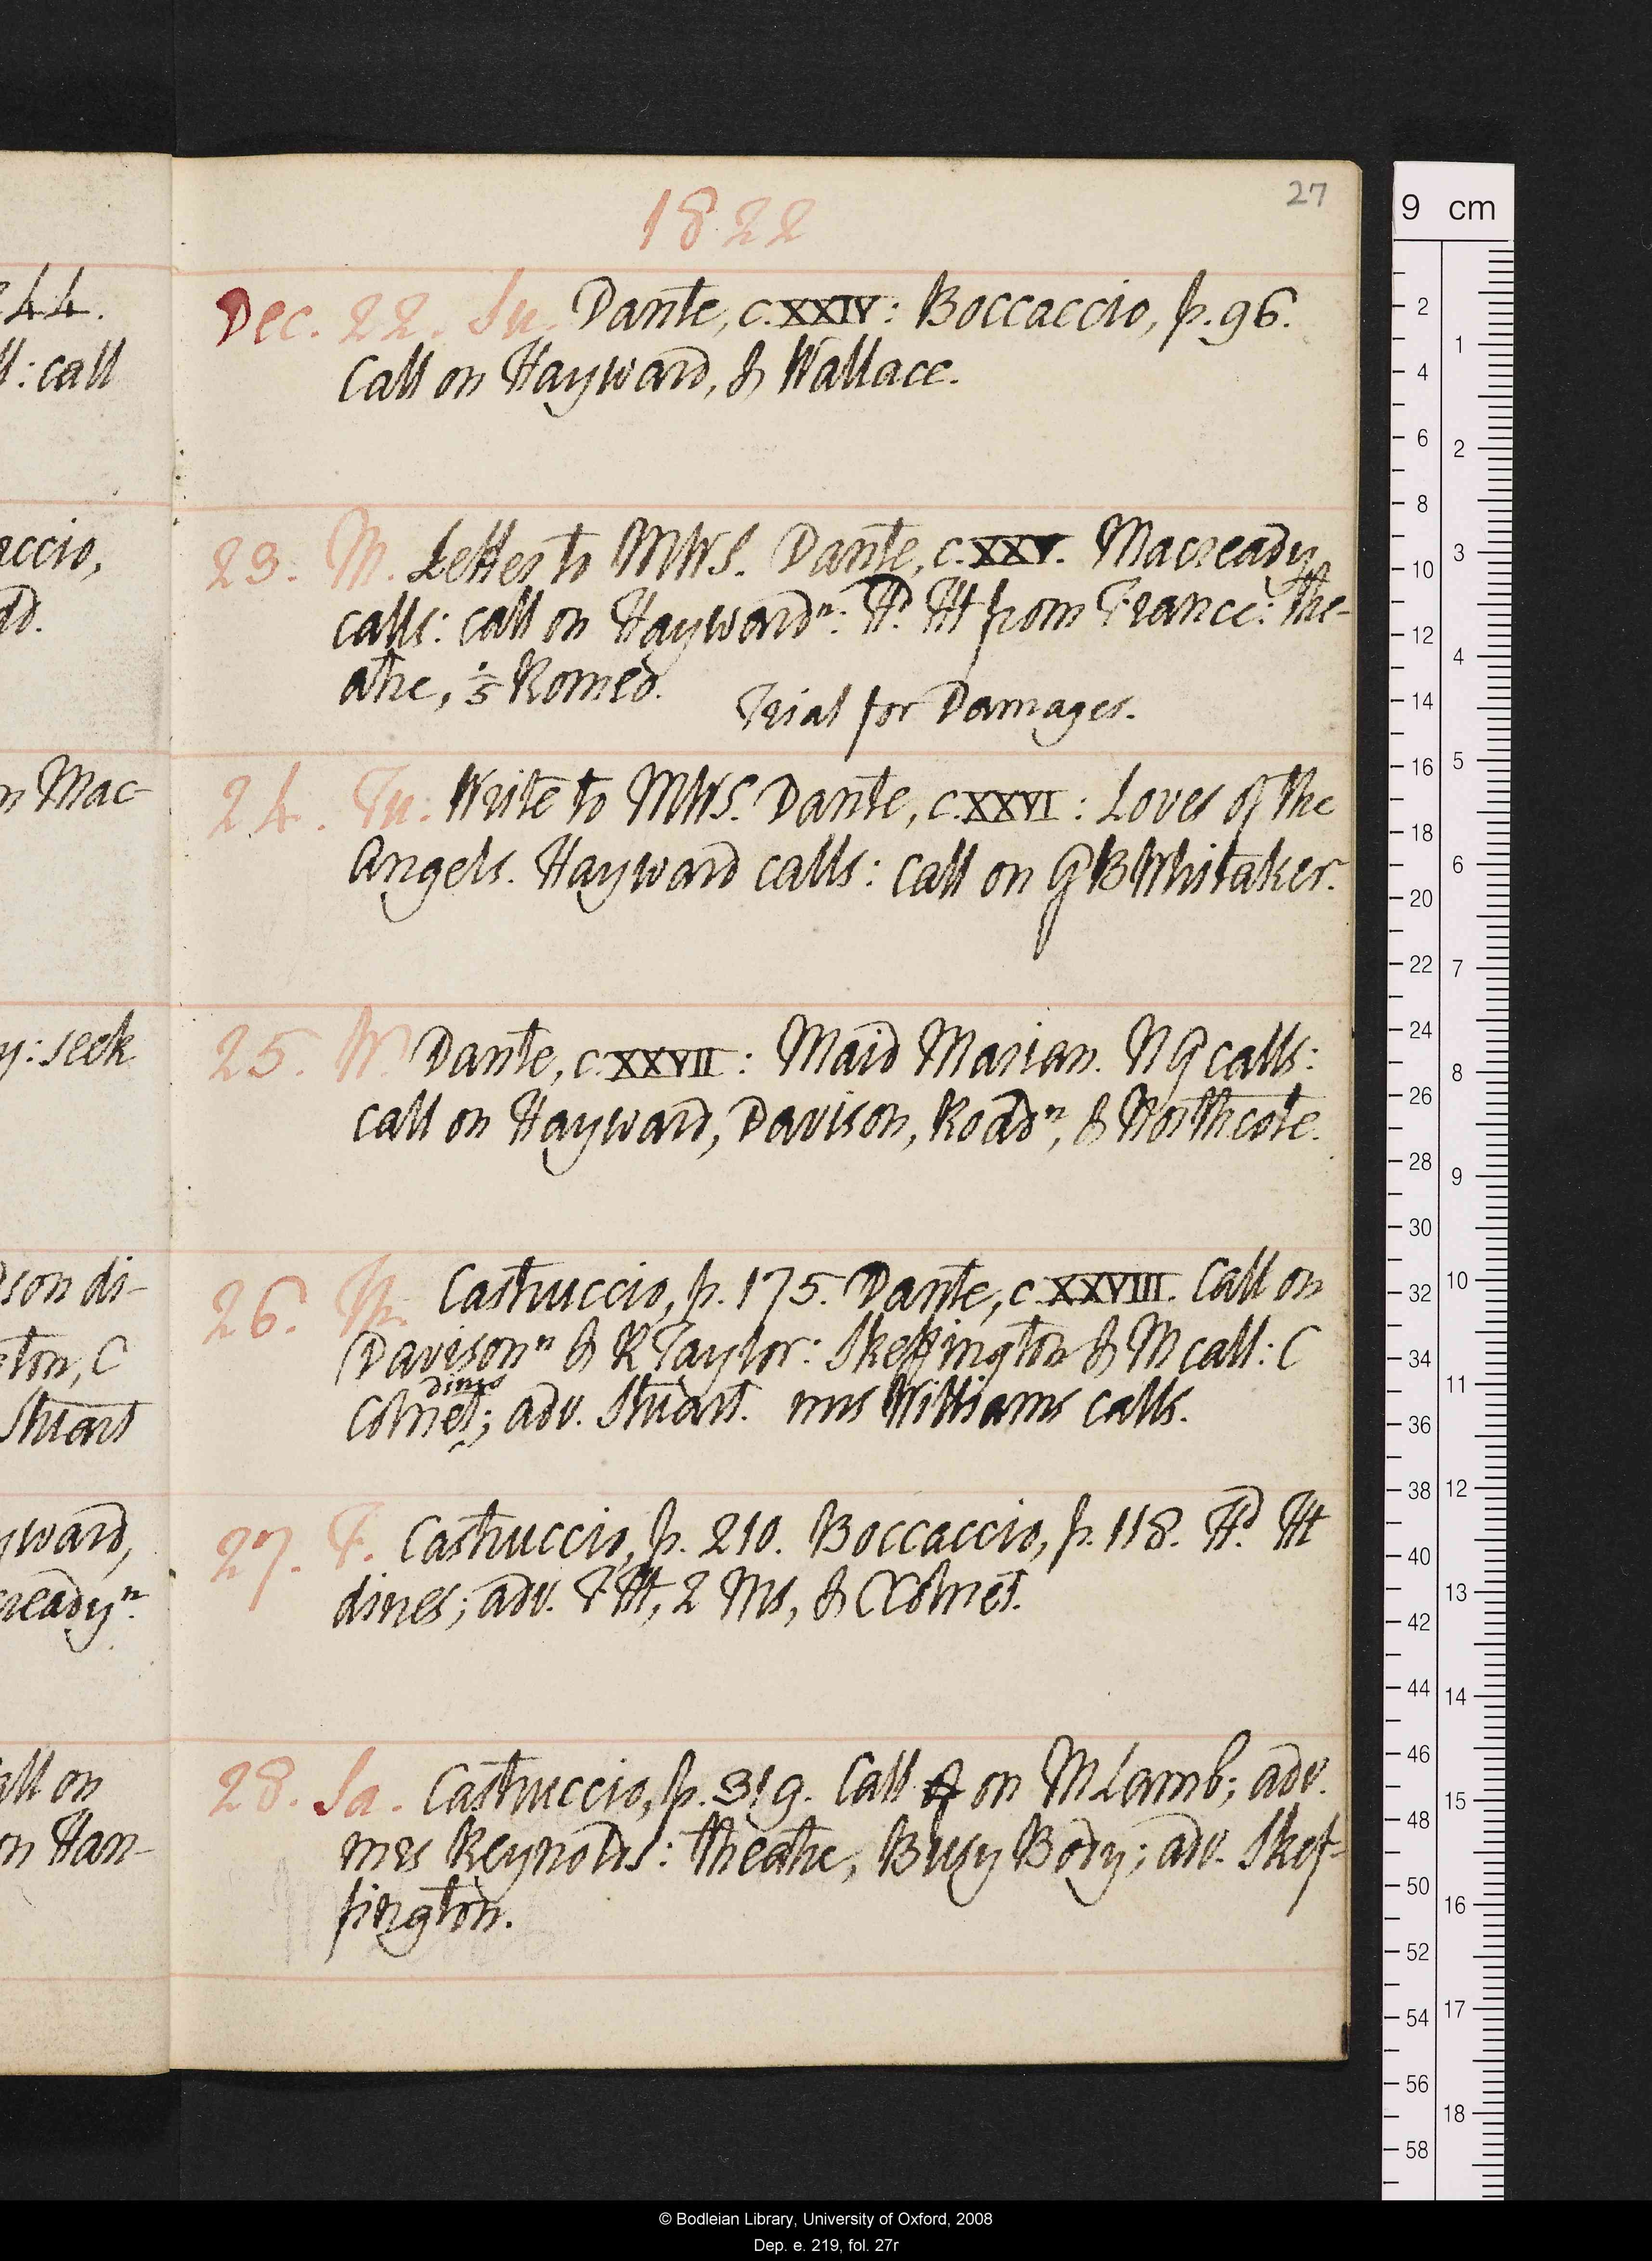 27
1822
Dec. 22. Su. Dante, c. XXIV: Boccaccio, p. 96.
Call on Hayward, & Wallace.
23. M. Letter to MWS. Dante, c. XXV. Macready
calls: call on Haywardⁿ: Hᵈ Ht from France: the-
atre, ⅕ Romeo.
Trial for Damages.
24. Tu. Write to MWS. Dante, c. XXVI: Loves of the
Angels. Hayward calls: call on GBWhitaker.
25. W. Dante, c. XXVII: Maid Marian. NG calls:
call on Hayward, Davison, Roadⁿ, & Northcote.
26. Th. Castruccio, p. 175. Dante, c. XXVIII. Call on
Davisonⁿ & R Taylor: Skeffington & M call: C
dines
Colnet; adv. Stuart. mrs Williams calls.
27. F. Castruccio, p. 210. Boccaccio, p. 118. Hᵈ Ht
dines; adv. FHt, 2 Ms, & CColnet.
28. Sa. Castruccio, p. 319. Call on MLamb; adv.
mrs Reynolds: theatre, Busy Body; adv. Skef-
fington.
244.
l: call
accio,
dd.
n Mac-
y: seek
son di-
ton, C
Stuart
yward,
readyⁿ.
all on
n Han-
9 cm
2
4
6
8
10
12
14
16
18
20
22
24
26
28
30
32
34
36
38
40
42
44
46
48
50
52
54
56
58
1
2
3
4
5
6
7
8
9
10
11
12
13
14
15
16
17
18
© Bodleian Library, University of Oxford, 2008
Dep. e. 219, fol. 27r